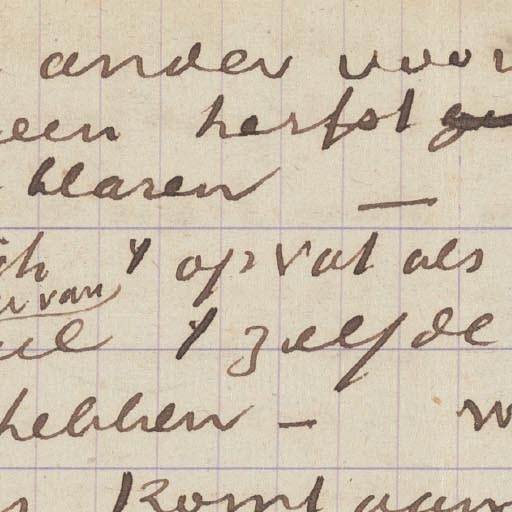 ander voor
een herfst
blaren —
ik 't opvat als
van
't zelfde
hebben — 
Komt aan